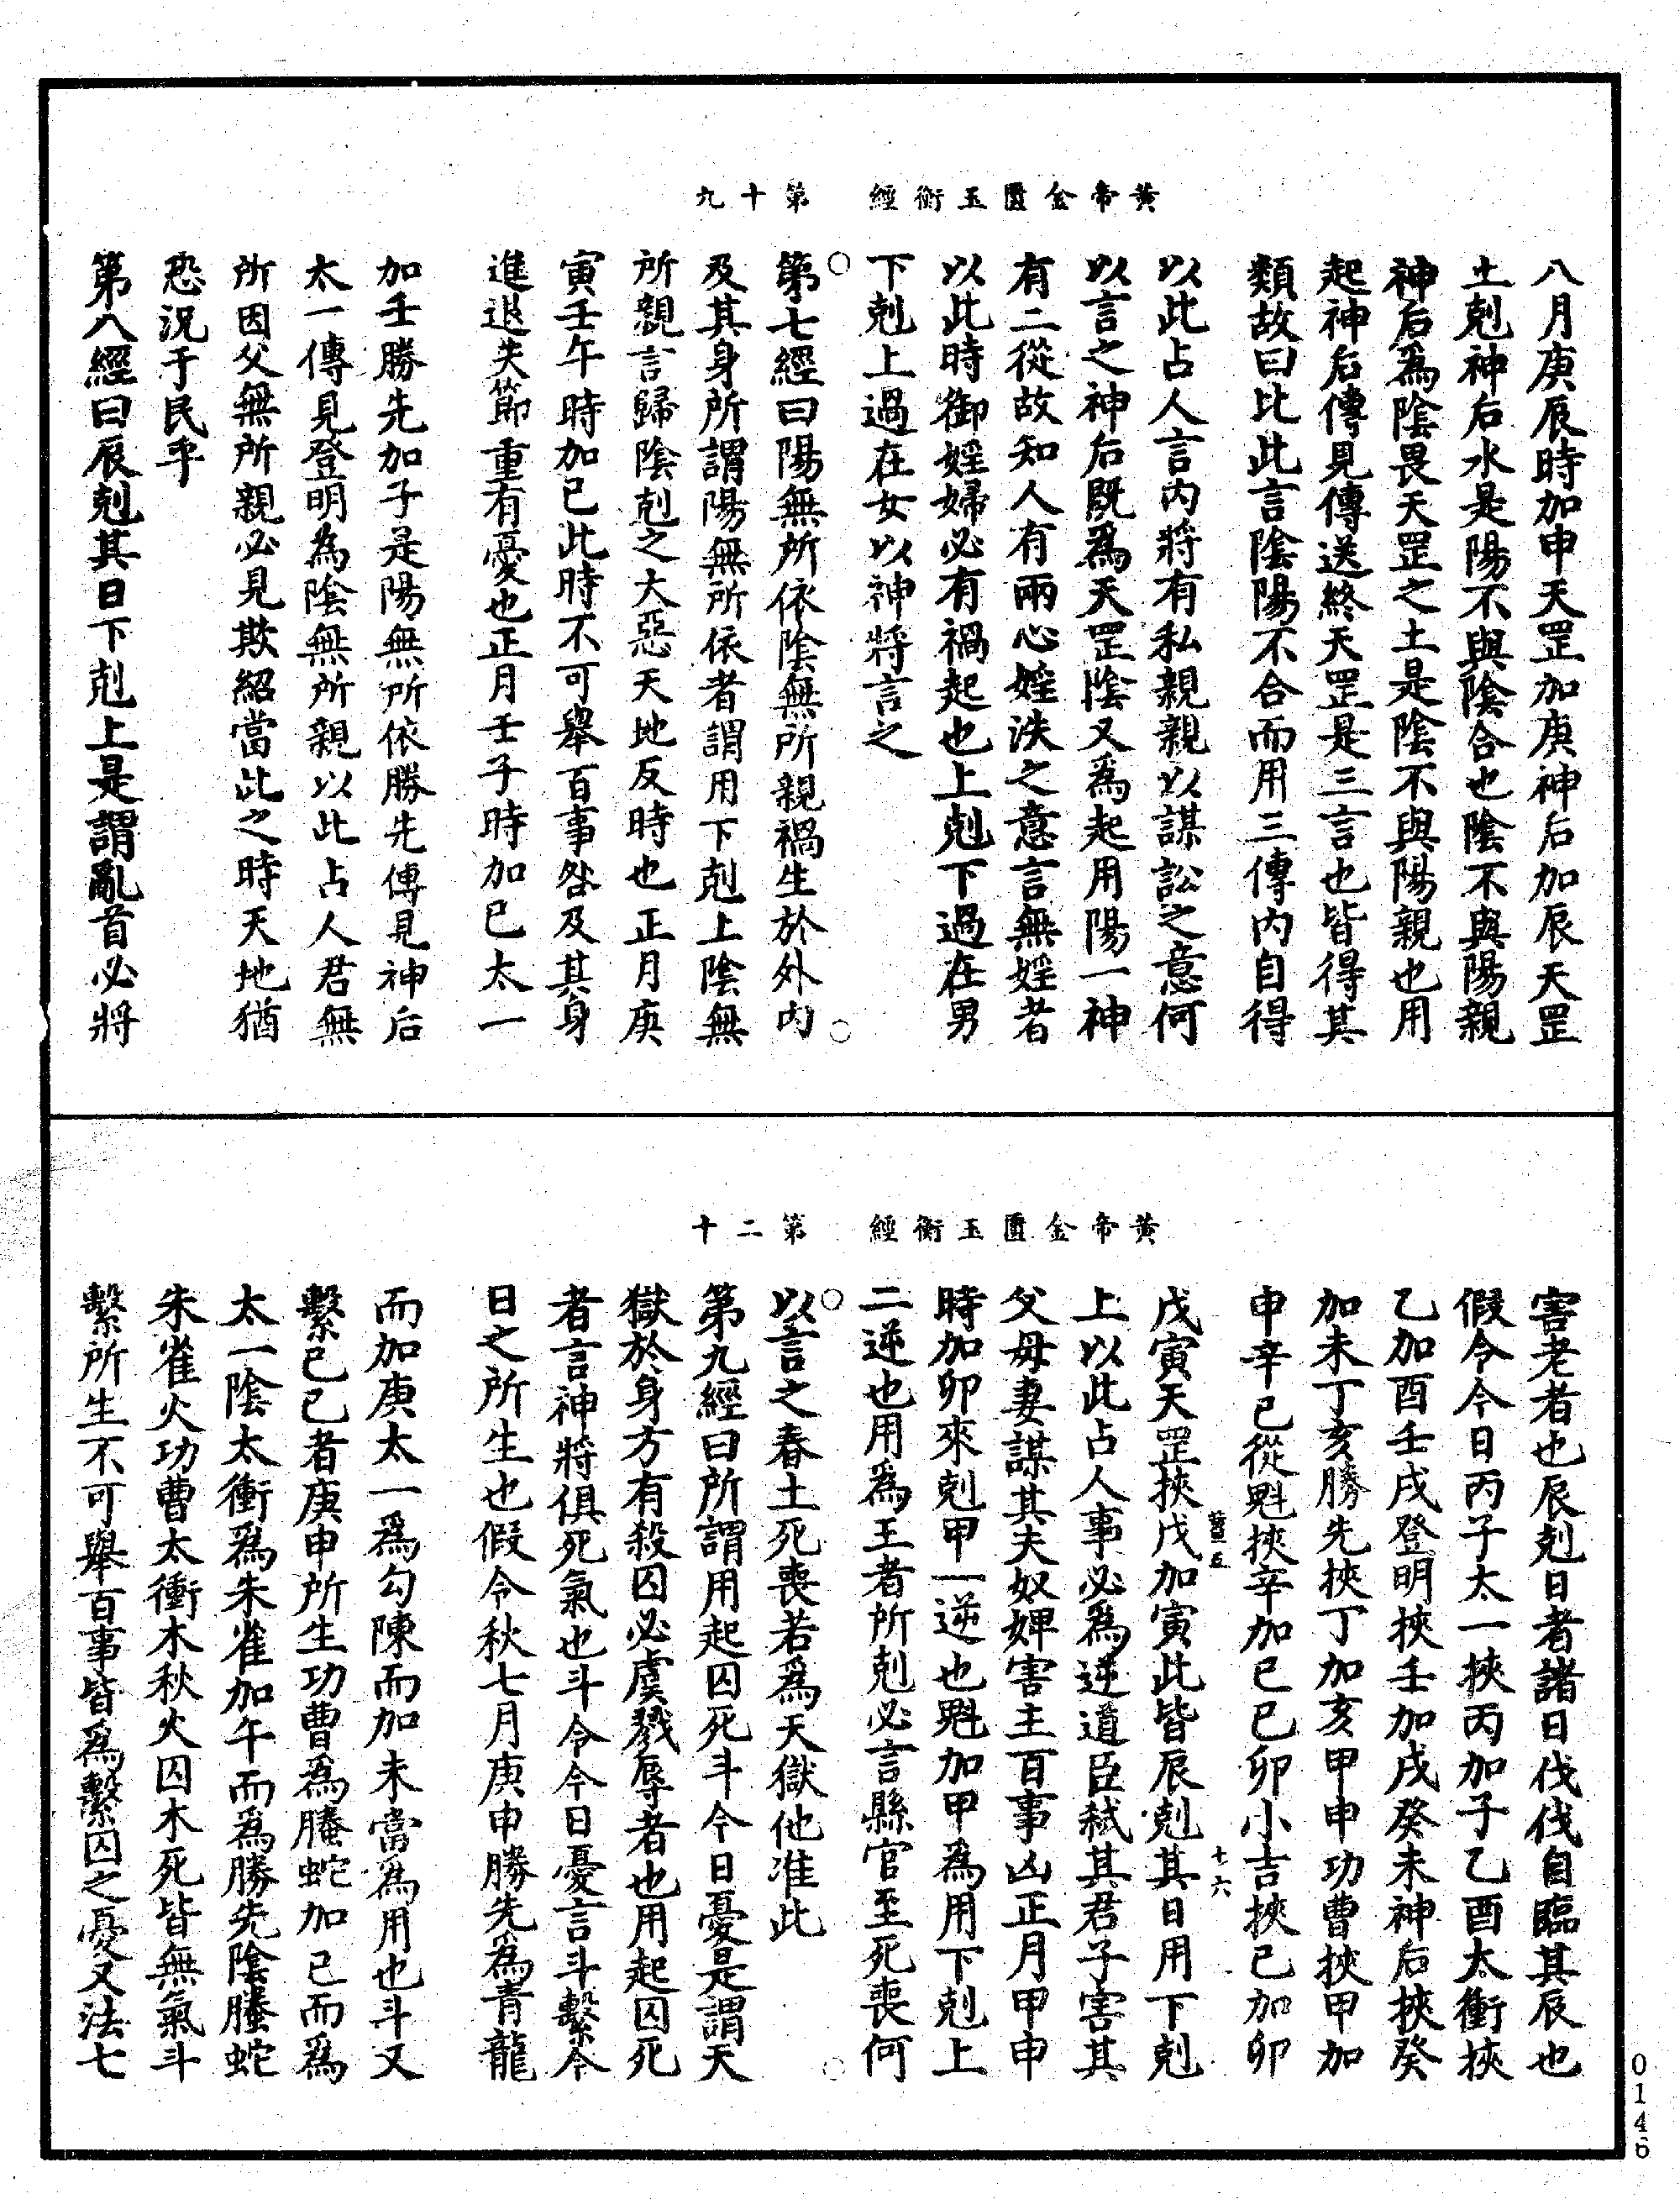 黃帝金匱玉衡經　第十九
八月庚辰時加申天罡加庚神后加辰天罡
土剋神后水是陽不與陰合也陰不與陽親
神后為陰畏天罡之土是陰不與陽親也用
起神后傳見傳送終天罡是三言也皆得其
類故曰比此言陰陽不合而用三傳內自得
以此占人言內將有私親親以謀訟之意何
以言之神后既為天罡陰又為起用陽一神
有二從故知人有兩心婬泆之意言無婬者
以此時御婬婦必有禍起也上剋下過在男
下剋上過在女以神將言之
第七經曰陽無所依陰無所親禍生於外內
及其身所謂陽無所依者謂用下剋上陰無
所親言歸陰剋之大惡天地反時也正月庚
寅壬午時加巳此時不可舉百事咎及其身
進退失節重有憂也正月壬子時加巳太一
加壬勝先加子是陽無所依勝先傳見神后
太一傳見登明為陰無所親以此占人君無
所因父無所親必見欺紹當此之時天地猶
恐況于民乎
第八經曰辰剋其日下剋上是謂亂首必將
黃帝金匱玉衡經　第二十
害老者也辰剋日者諸日伐伐自臨其辰也
假令今日丙子太一挾丙加子乙酉太衝挾
乙加酉壬戌登明挾壬加戌癸未神后挾癸
加未丁亥勝先挾丁加亥甲申功曹挾甲加
申辛巳從魁挾辛加巳己卯小吉挾己加卯
戊寅天罡挾戊加寅此皆辰剋其日用下剋
十六
上以此占人事必為逆道臣弒其君子害其
父母妻謀其夫奴婢害主百事凶正月甲申
時加卯來剋甲一逆也魁加甲為用下剋上
二逆也用為王者所剋必言縣官至死喪何
以言之春土死喪若為天獄他准此
第九經曰所謂用起囚死斗今日憂是謂天
獄於身方有殺囚必虞戮辱者也用起囚死
者言神將俱死氣也斗令今日憂言斗繫今
日之所生也假令秋七月庚申勝先為青龍
而加庚太一為勾陳而加未當為用也斗又
繫巳巳者庚申所生功曹為螣蛇加巳而為
太一陰太衝為朱雀加午而為勝先陰螣蛇
朱雀火功曹太衝木秋火囚木死皆無氣斗
繫所生不可舉百事皆為繫囚之憂又法七
0146